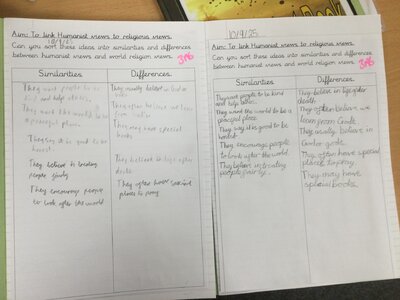 10/9/25
Aim: To link Humanist views to religious views.
Can you sort these ideas into similarities and differences
between humanist views and world religion views.
Similarities
Differences.
They want people to be
kind and help others.
They want the world to be
a peaceful place.
They say it is good to be
honest.
They believe in treating
people fairly
They encourage people
to look after the world
They usually believe in God or
Gods.
They often believe we learn
from God
They may have special
books
They believe in life after
death
They often have special
places to pray
10/9/25
Aim: To link Humanist views to religious views.
Can you sort these ideas into similarities and differences
between humanist views and world religion views.
Similarities
Differences.
They want people to be kind
and help others.
They want the world to be a
peaceful place.
They say it is good to be
honest.
They encourage people
to look after the world.
They believe in treating
people fairly.
They believe in life after
death.
They often believe we
learn from God.
They usually believe in
God or gods.
They often have special
places to pray.
They may have
special books.